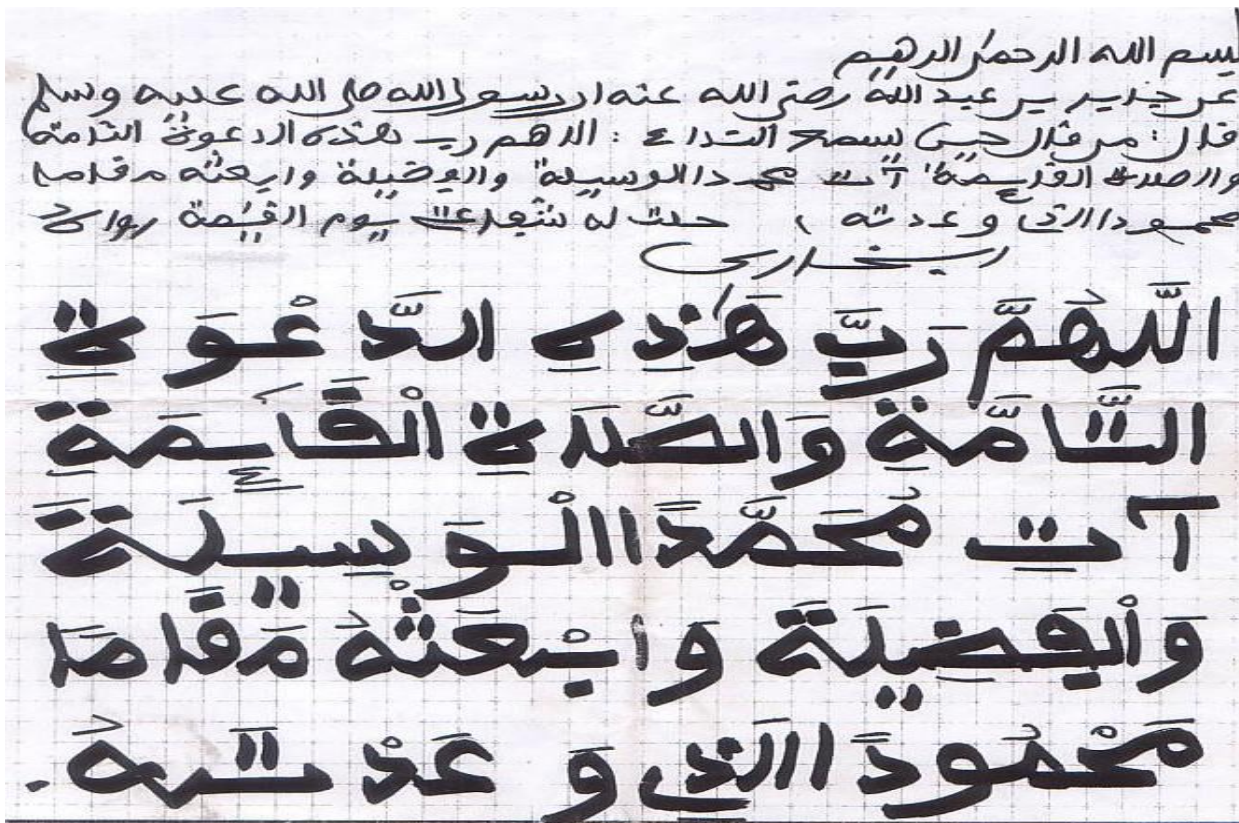 بسم الله الرحمن الرحيم
عن جابر بن عبد الله رضي الله عنه ان رسول الله صلى الله عليه وسلم
قال: من قال حين يسمع النداء: اللهم رب هذه الدعوة التامة
والصلاة القائمة آت محمدا الوسيلة والفضيلة وابعثه مقاما
محمودا الذي وعدته، حلت له شفاعتي يوم القيمة رواه
البخاري
اَللّهُمَّ رَبَّ هَٰذِهِ الدَّعْوَةِ
التَّامَّةِ وَالصَّلَاةِ الْقَائِمَةِ
آتِ مُحَمَّدًا الْوَسِيلَةَ
وَالْفَضِيلَةَ وَابْعَثْهُ مَقَامًا
مَحْمُودًا الَّذِي وَعَدْتَهُ.